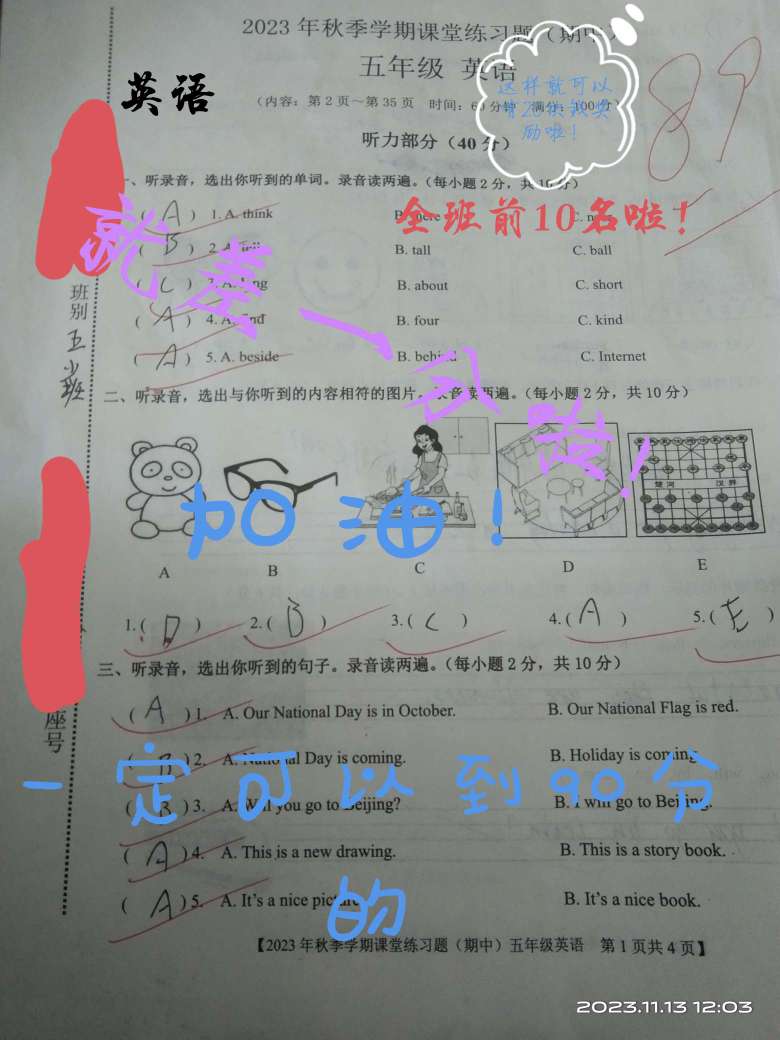 2023 年秋季学期课堂练习题（期中）
五年级 英语
英语
89
这样就可以
有20块钱奖
励啦！
（内容：第 2 页～第 35 页 时间：60 分钟 满分：100 分）
听力部分（40 分）
一、听录音，选出你听到的单词。录音读两遍。（每小题 2 分，共 10 分）
全班前10名啦！
( A ) 1. A. think B. here C.
( B ) 2. A. B. tall C. ball
( C ) 3. A. long B. about C. short
( A ) 4. A. find B. four C. kind
( A ) 5. A. beside B. behind C. Internet
就差一分啦！
班别 五 班
二、听录音，选出与你听到的内容相符的图片。录音读两遍。（每小题 2 分，共 10 分）
楚河 汉界
加油！
A B C D E
1. ( D ) 2. ( B ) 3. ( C ) 4. ( A ) 5. ( E )
三、听录音，选出你听到的句子。录音读两遍。（每小题 2 分，共 10 分）
座号
( A ) 1. A. Our National Day is in October. B. Our National Flag is red.
( B ) 2. A. National Day is coming. B. Holiday is coming.
一定可以到90分
( B ) 3. A. Will you go to Beijing? B. I will go to Beijing.
( A ) 4. A. This is a new drawing. B. This is a story book.
( A ) 5. A. It's a nice picture. B. It's a nice book.
的
【2023 年秋季学期课堂练习题（期中）五年级英语 第 1 页共 4 页】
2023.11.13 12:03